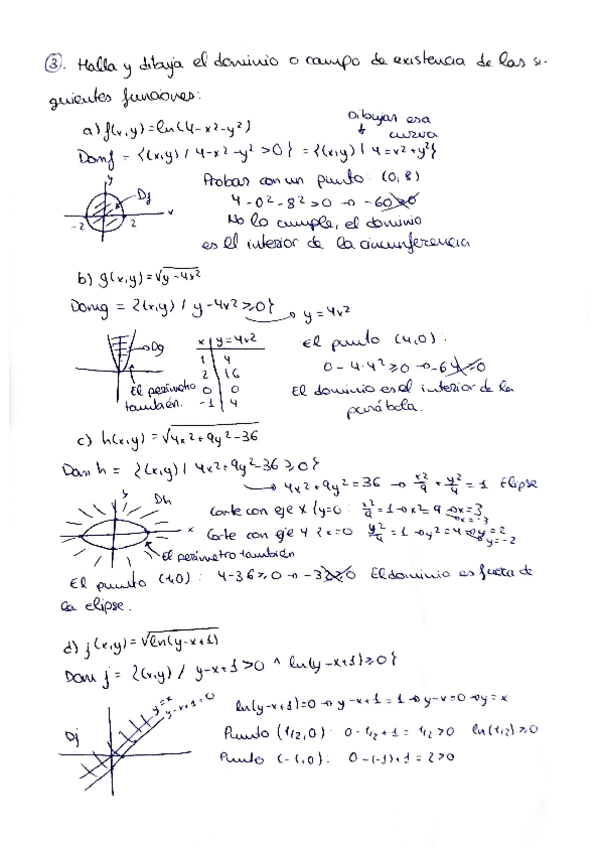 3. Halla y dibuja el dominio o campo de existencia de las si-
guientes funciones:
a) f(x,y)=ln(4-x²-y²)
Dibujar esa
curva
Domf = {(x,y) / 4-x²-y²>0} = {(x,y) / 4=x²+y²}
y
Df
-2
2
x
Probar con un punto: (0,8)
4-0²-8²>0 → -60>0
No lo cumple, el dominio
es el interior de la circunferencia
b) g(x,y)=√y-4x²
Domg = {(x,y) / y-4x²≥0} → y=4x²
Dg
El perímetro
también.
x y=4x²
1 4
2 16
0 0
-1 4
El punto (4,0):
0-4·4²≥0 → -64≥0
El dominio es el interior de la
parábola.
c) h(x,y)=√4x²+9y²-36
Dom h = {(x,y) / 4x²+9y²-36≥0}
→ 4x²+9y²=36 → x²/9 + y²/4 = 1 Elipse
y
Dh
x
El perímetro también
Corte con eje x {y=0: x²/9=1→x²=9→x=3
→x=-3
Corte con eje y {x=0 y²/4=1→y²=4→y=2
y=-2
El punto (1,0): 4-36≥0 → -32≥0 El dominio es fuera de
la elipse.
d) j(x,y)=√ln(y-x+1)
Dom j = {(x,y) / y-x+1>0 ^ ln(y-x+1)≥0}
Dj
y=x
y-x+1=0
ln(y-x+1)=0→y-x+1=1→y-x=0→y=x
Punto (1/2,0): 0-1/2+1=1/2>0 ln(1/2)≥0
Punto (-1,0): 0-(-1)+1=2>0